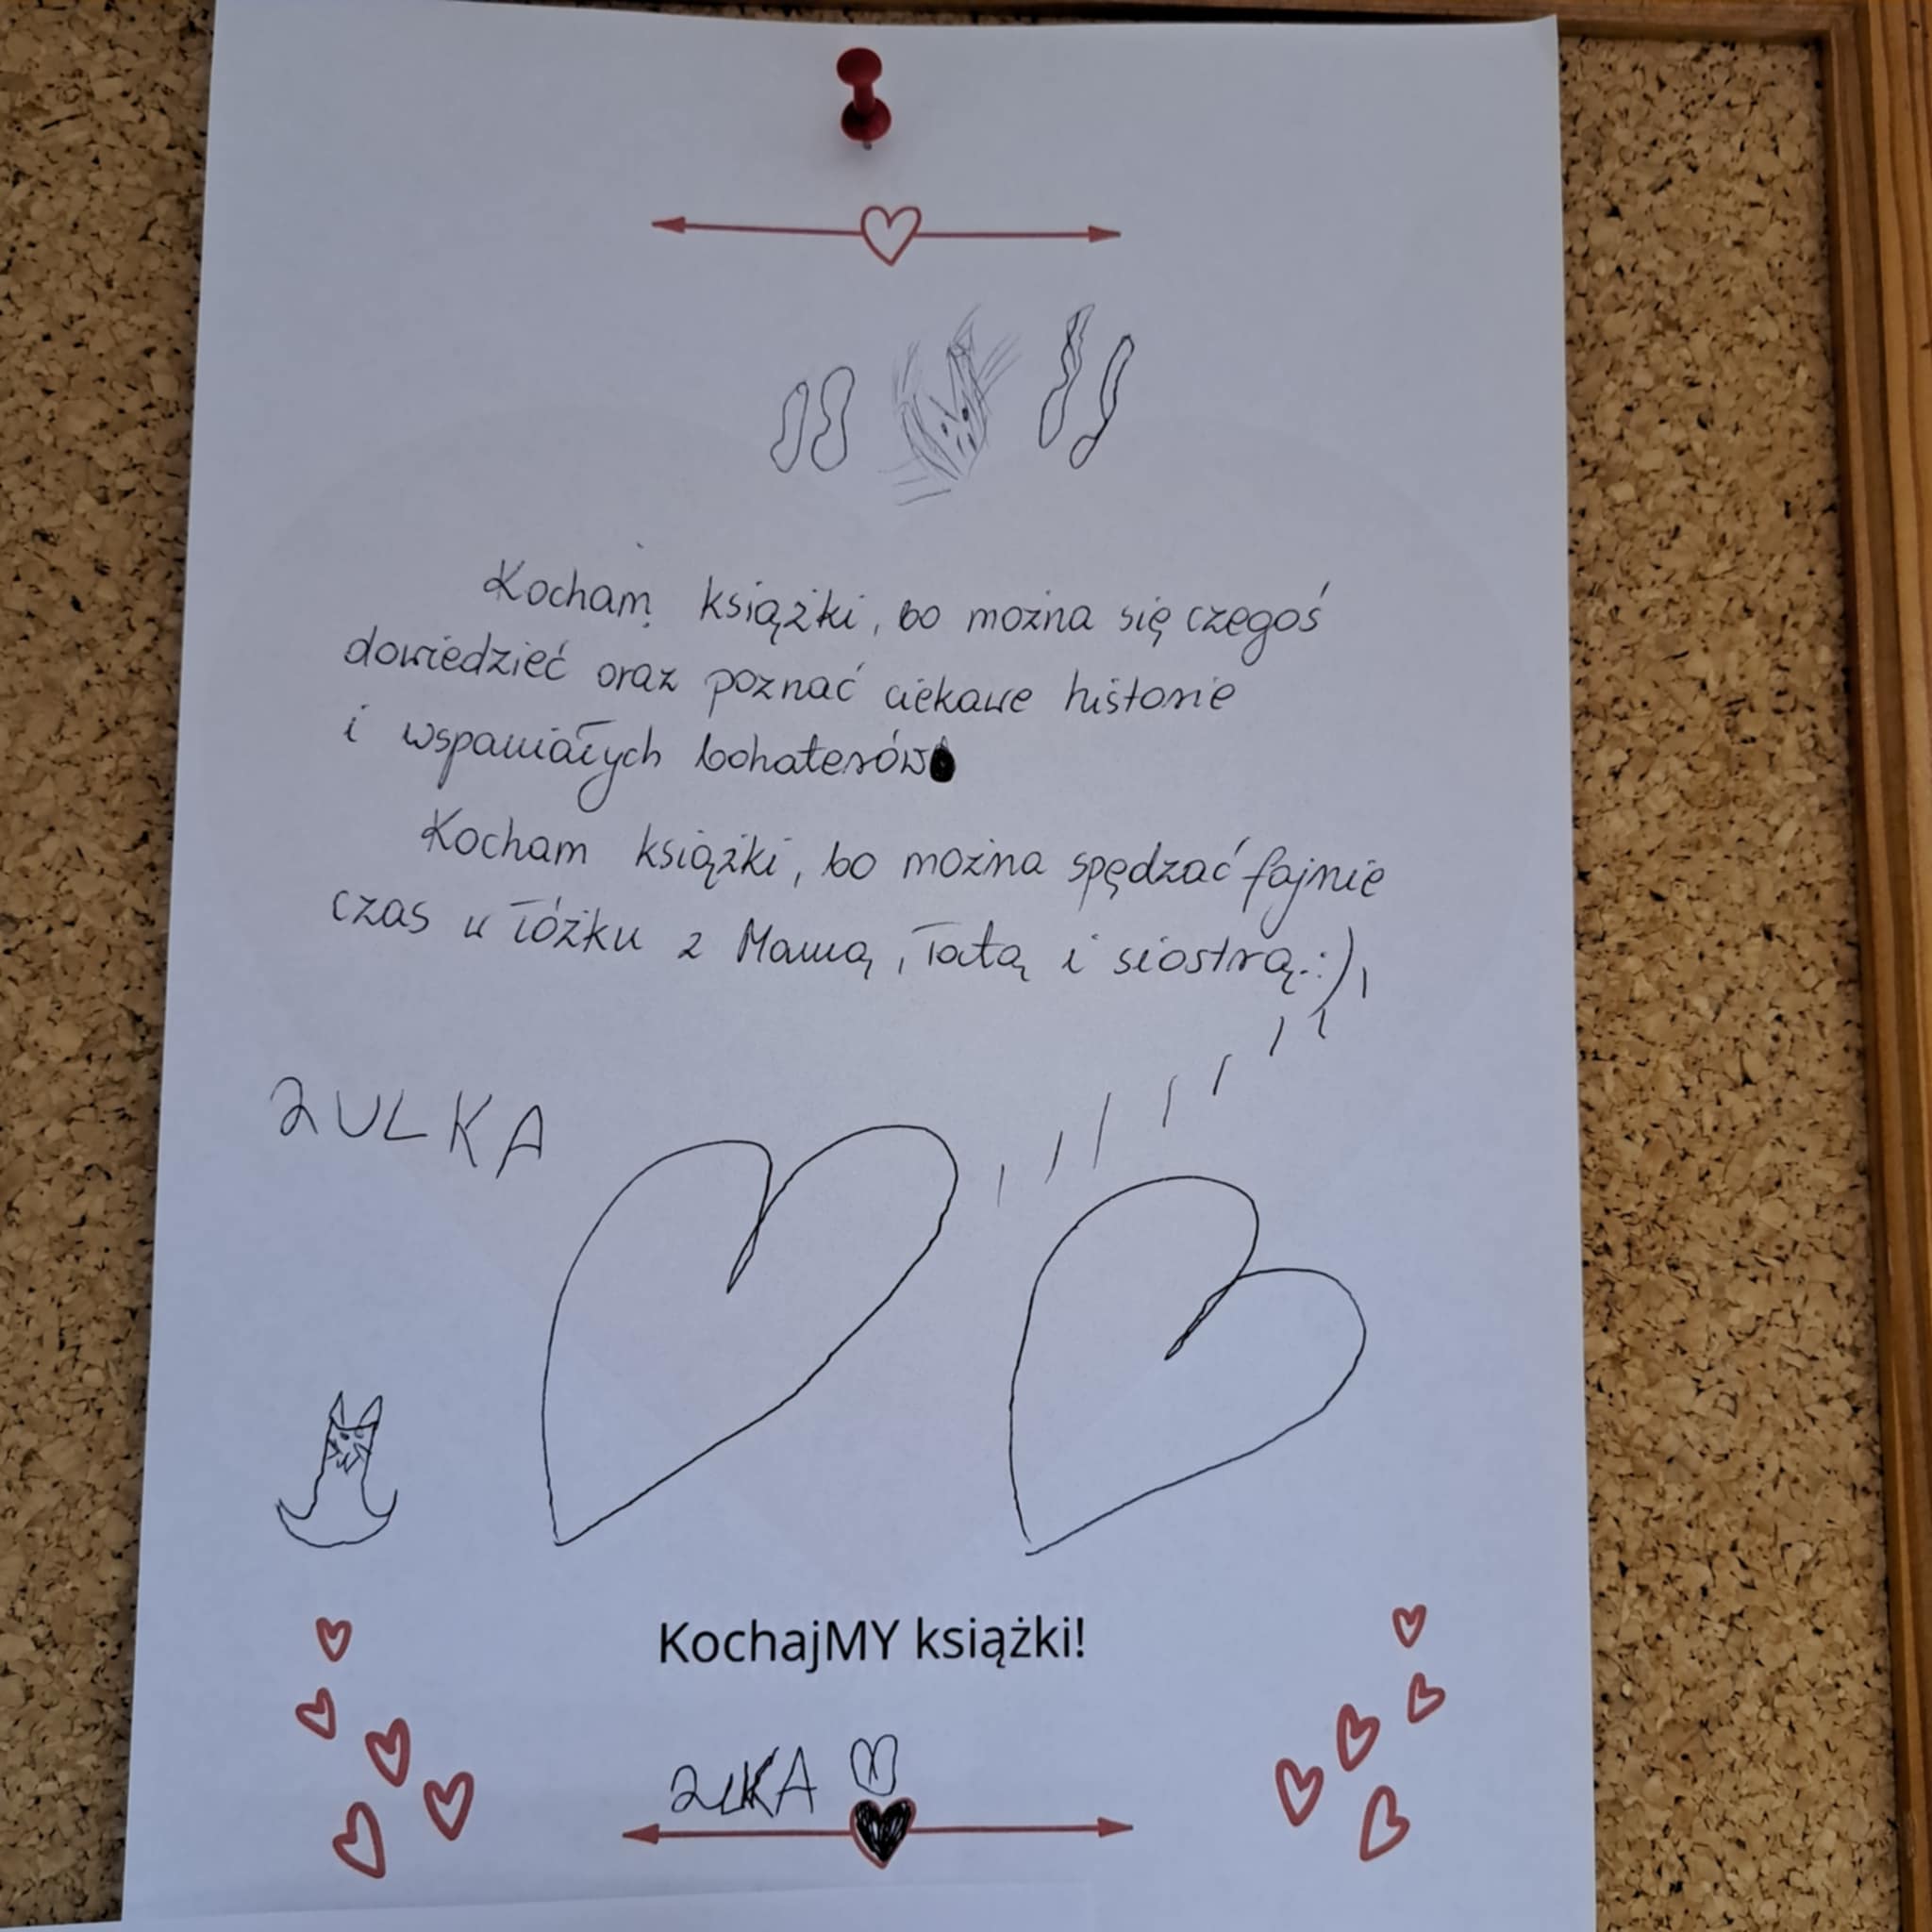 Kocham książki, bo można się czegoś
dowiedzieć oraz poznać ciekawe historie
i wspaniałych bohaterów
Kocham książki, bo można spędzać fajnie
czas w łóżku z Mamą, Tatą i siostrą.:)
ZULKA
KochajMY książki!
ZLKA